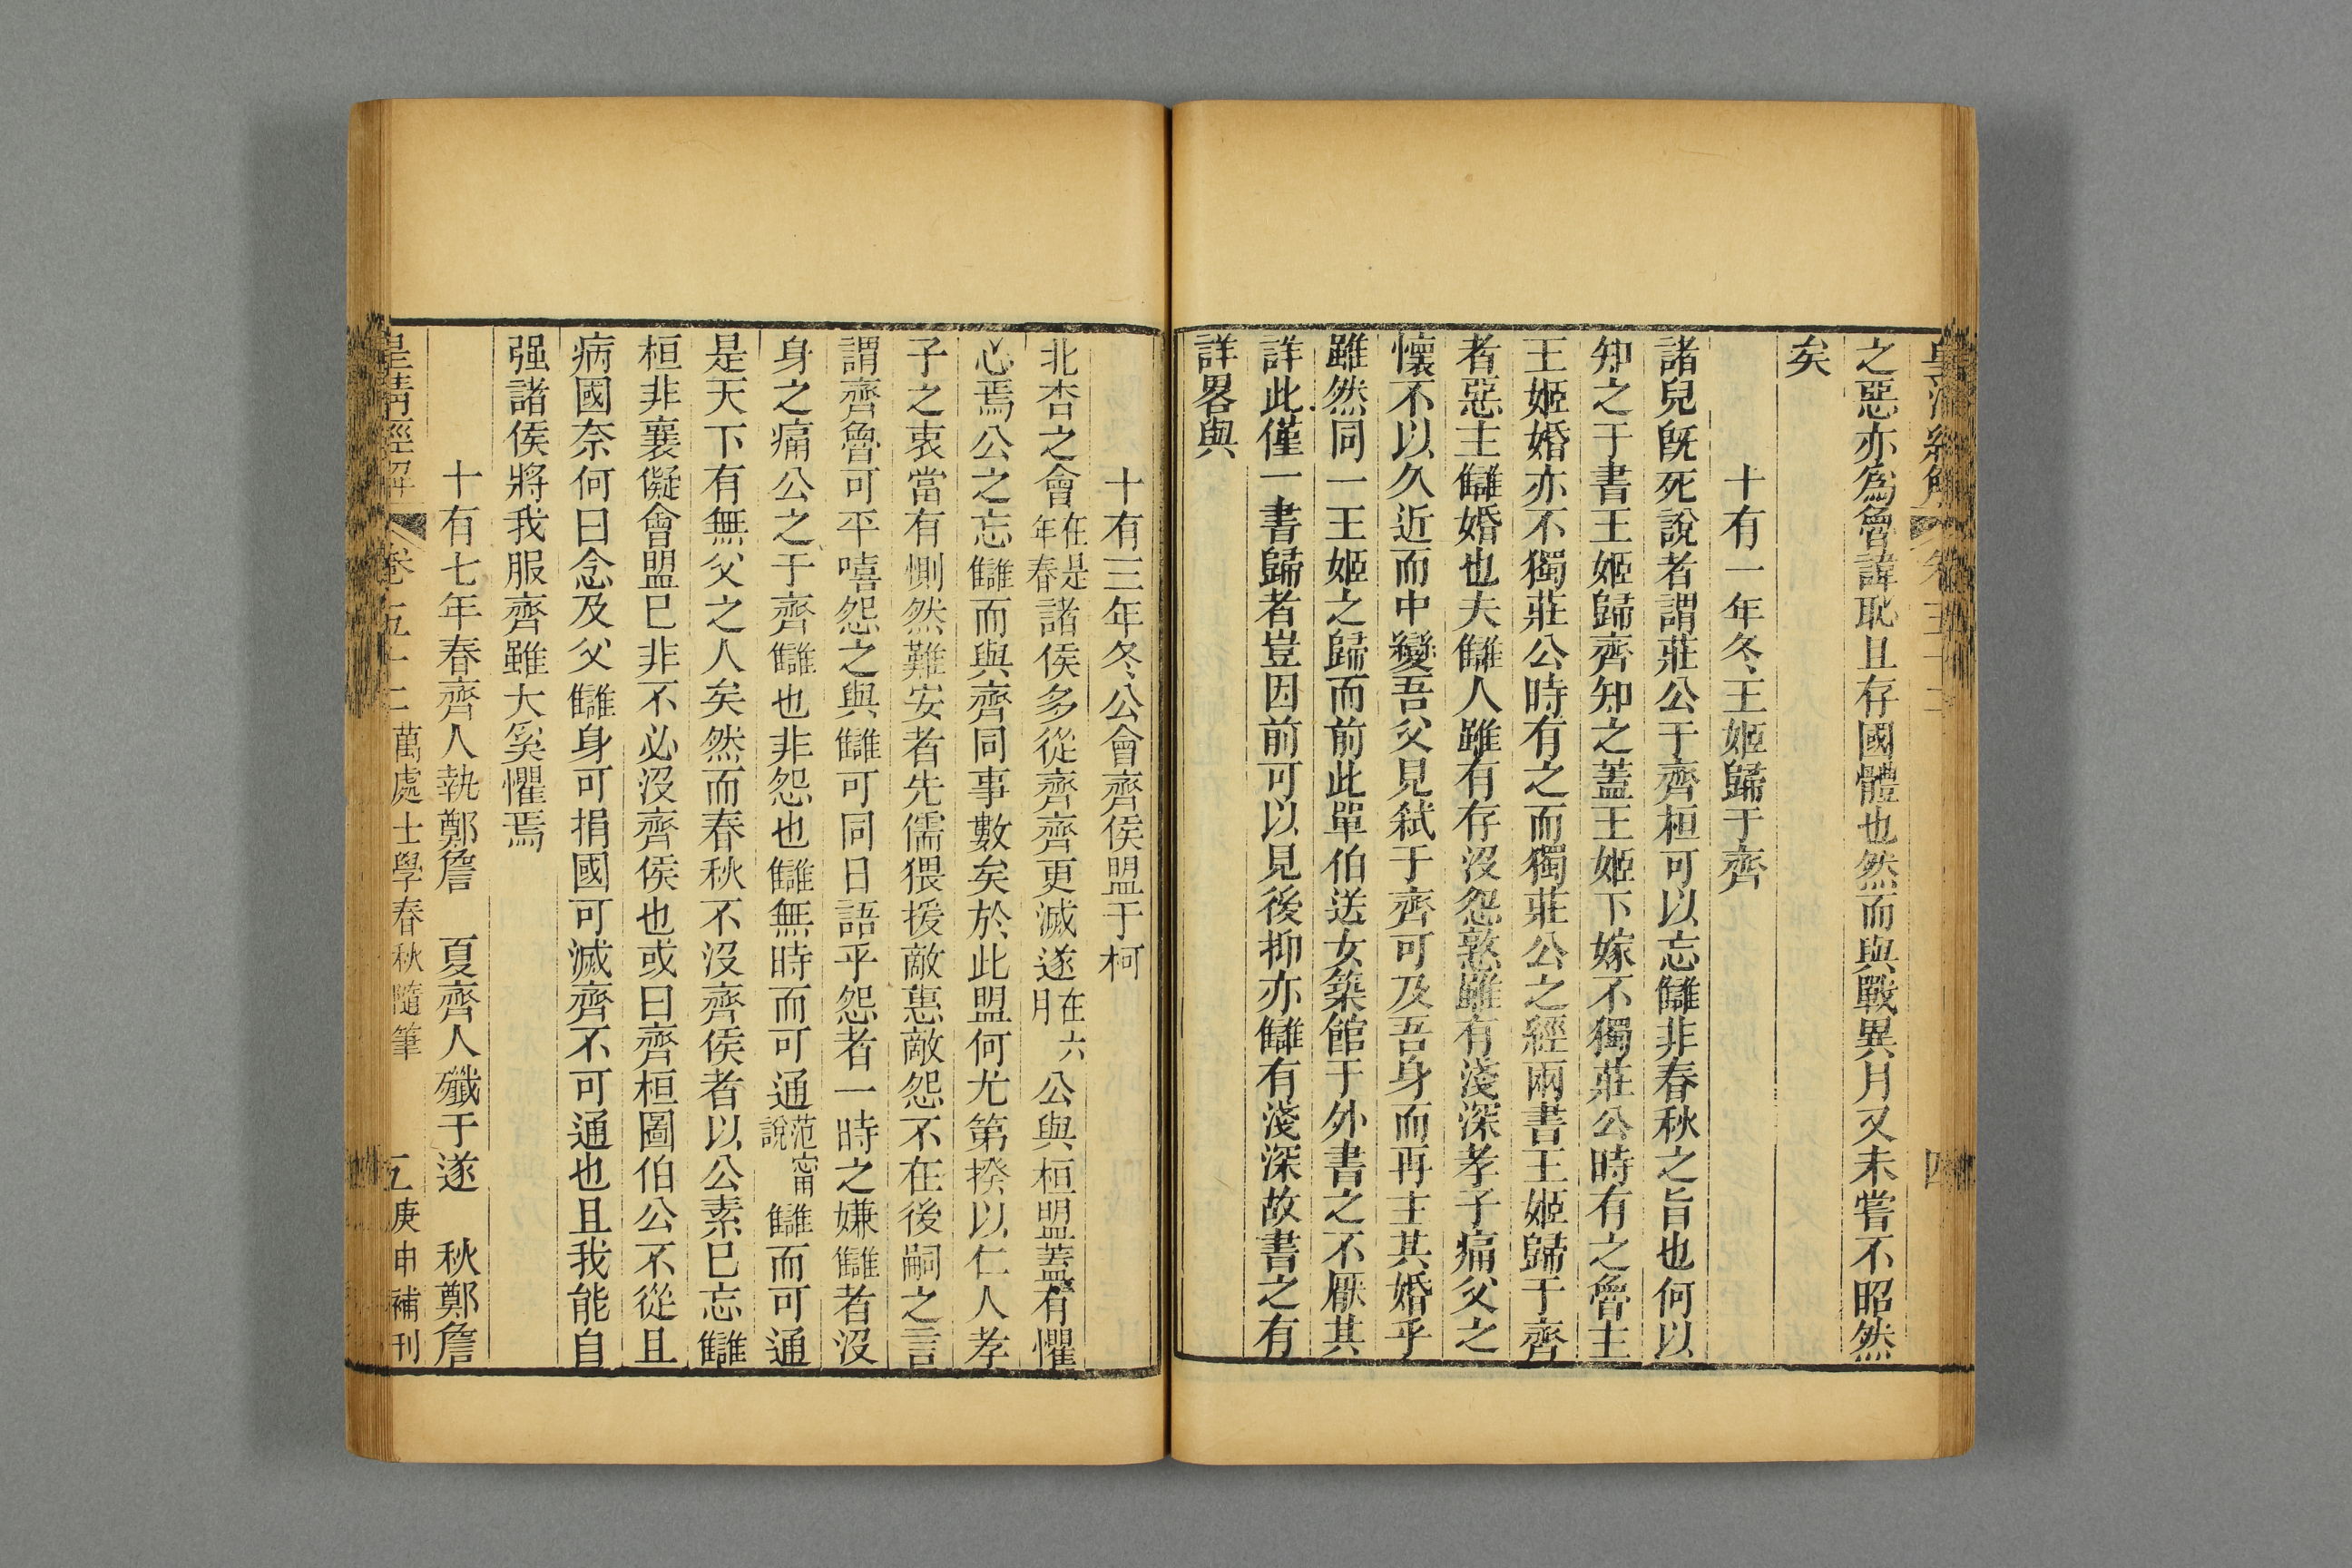 之惡亦爲魯諱恥且存國體也然而與戰異月又未嘗不昭然
矣
十有一年冬王姬歸于齊
諸兒旣死說者謂莊公于齊桓可以忘讎非春秋之旨也何以
知之于書王姬歸齊知之蓋王姬下嫁不獨莊公時有之魯主
王姬婚亦不獨莊公時有之而獨莊公之經兩書王姬歸于齊
者惡主讎婚也夫讎人雖有存沒怨憝雖有淺深孝子痛父之
懷不以久近而中變吾父見弑于齊可及吾身而再主其婚乎
雖然同一王姬之歸而前此單伯送女築館于外書之不厭其
詳此僅一書歸者豈因前可以見後抑亦讎有淺深故書之有
詳畧與
四
十有三年冬公會齊侯盟于柯
北杏之會在是年春諸侯多從齊齊更滅遂在六月公與桓盟蓋有懼
心焉公之忘讎而與齊同事數矣於此盟何尤第揆以仁人孝
子之衷當有惻然難安者先儒猥援敵惠敵怨不在後嗣之言
謂齊魯可平嘻怨之與讎可同日語乎怨者一時之嫌讎者沒
身之痛公之于齊讎也非怨也讎無時而可通范甯說讎而可通
是天下有無父之人矣然而春秋不沒齊侯者以公素已忘讎
桓非襄儗會盟已非不必沒齊侯也或曰齊桓圖伯公不從且
病國奈何曰念及父讎身可捐國可滅齊不可通也且我能自
强諸侯將我服齊雖大奚懼焉
十有七年春齊人執鄭詹　夏齊人殲于遂　秋鄭詹
皇淸經解　卷五十二　萬處士學春秋隨筆　五　庚申補刊